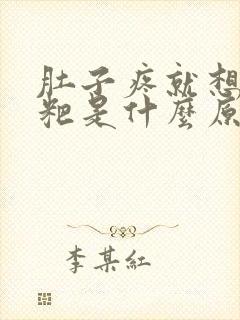 肚子疼就想
粑是什麼原
李某紅